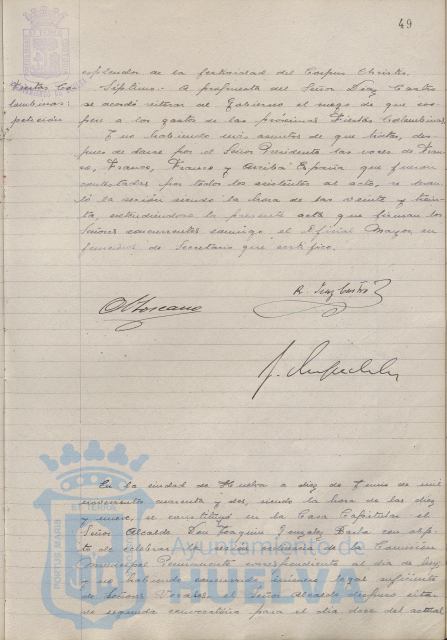 49
esplendor de la festividad del Corpus Christi.
Fiestas Co-
lombinas:
petición
Septimo.- A propuesta del Señor Díaz Castro
se acordó reiterar al Gobierno el ruego de que coo-
pere a los gastos de las próximas Fiestas Colombinas.
Y no habiendo más asuntos de que tratar, des-
pues de darse por el Señor Presidente las voces de Fran-
co, Franco, Franco y Arriba España que fueron
contestadas por todos los asistentes al acto, se levan-
tó la sesión siendo la hora de las veinte y trein-
ta, extendiéndose la presente acta que firman los
Señores concurrentes conmigo el Oficial Mayor en
funciones de Secretario que certifico.
R. Díaz Castro
En la ciudad de Huelva a diez de Junio de mil
novecientos cuarenta y dos, siendo la hora de las diez
y nueve, se constituyó en la Casa Capitular el
Señor Alcalde Don Joaquin Gonzalez Barba con obje-
to de celebrar la sesion ordinaria de la Comision
Municipal Permanente correspondiente al dia de hoy,
y no habiendo concurrido número legal suficiente
de Señores Vocales, el Señor Alcalde dispuso citar
de segunda convocatoria para el dia doce del actual
PORTUS MARIS ET TERRAE
Ayuntamiento de
HUELVA